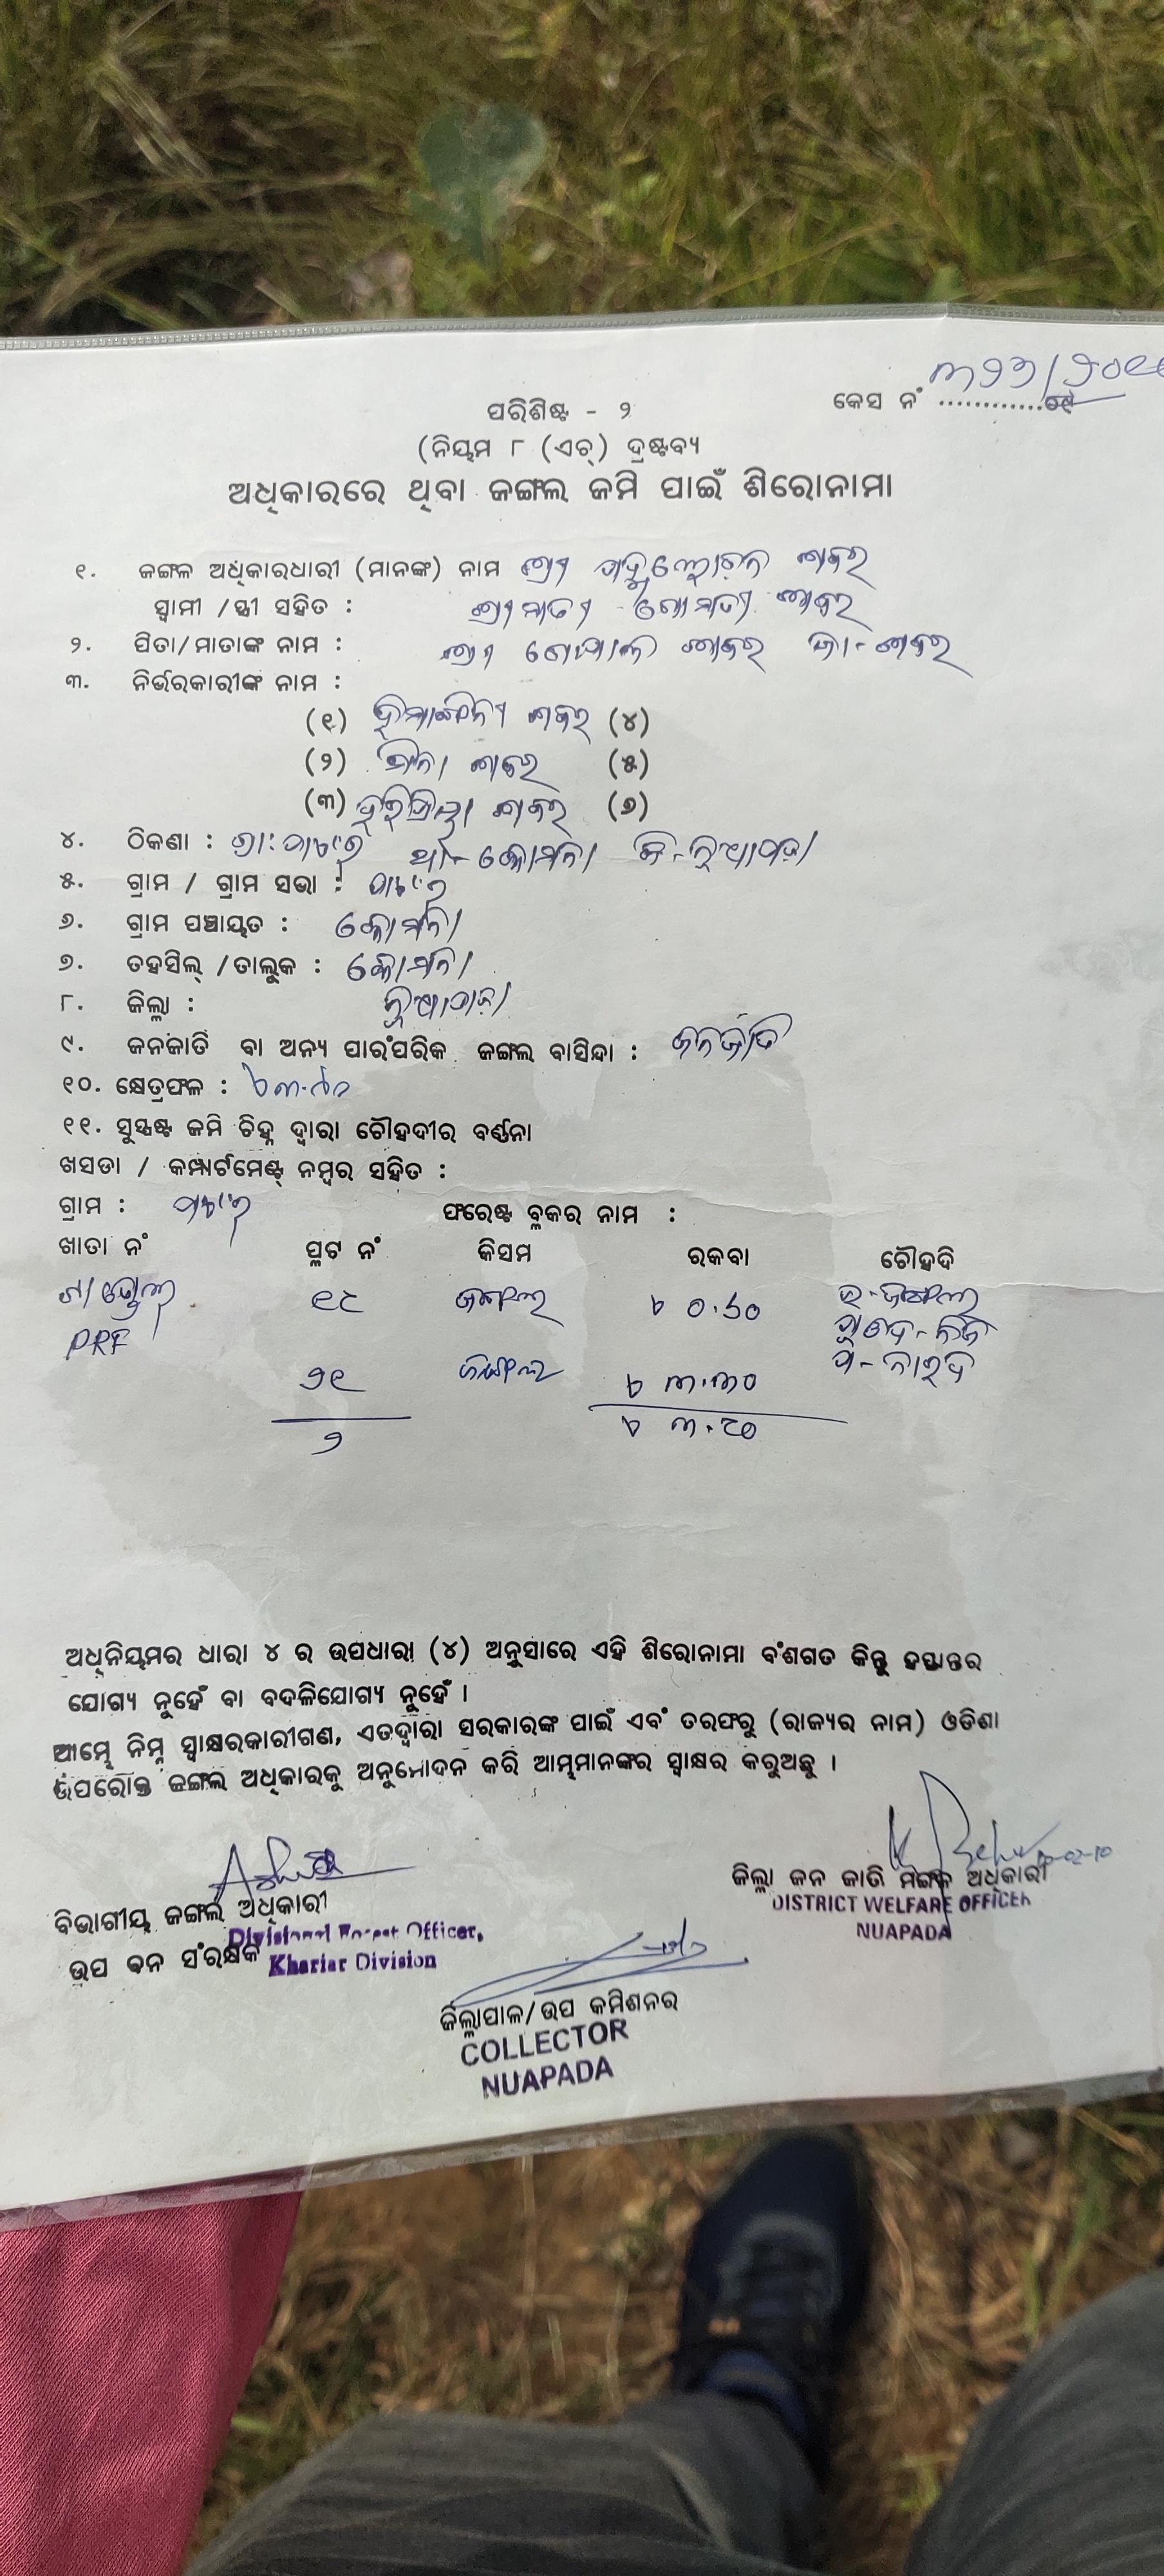 କେସ ନଂ ............
ପରିଶିଷ୍ଟ - ୨
(ନିୟମ ୮ (ଏଚ୍) ଦ୍ରଷ୍ଟବ୍ୟ
ଅଧିକାରରେ ଥିବା ଜଙ୍ଗଲ ଜମି ପାଇଁ ଶିରୋନାମା
୧. ଜଙ୍ଗଳ ଅଧିକାରଧାରୀ (ମାନଙ୍କ) ନାମ ଶ୍ରୀ ଶବର
ସ୍ୱାମୀ /ସ୍ତ୍ରୀ ସହିତ : ଶ୍ରୀମତୀ ଗୋମତୀ ଶବର
୨. ପିତା/ମାତାଙ୍କ ନାମ : ଶ୍ରୀ ଗୋପାଳ ଶବର ଜା-ଶବର
୩. ନିର୍ଭରକାରୀଙ୍କ ନାମ :
(୧) ଶବର (୪)
(୨) ଶବର (୫)
(୩) ହରିପ୍ରିୟା ଶବର (୬)
୪. ଠିକଣା : କୋମନା ଜି-ନୂଆପଡ଼ା
୫. ଗ୍ରାମ / ଗ୍ରାମ ସଭା :
୬. ଗ୍ରାମ ପଞ୍ଚାୟତ : କୋମନା
୭. ତହସିଲ୍ /ତାଲୁକ : କୋମନା
୮. ଜିଲ୍ଲା : ନୂଆପଡ଼ା
୯. ଜନଜାତି ବା ଅନ୍ୟ ପାରଂପରିକ ଜଙ୍ଗଲ ବାସିନ୍ଦା : ଜନଜାତି
୧୦. କ୍ଷେତ୍ରଫଳ :
୧୧. ସୁସ୍ପଷ୍ଟ ଜମି ଚିହ୍ନ ଦ୍ୱାରା ଚୌହଦୀର ବର୍ଣ୍ଣନା
ଖସଡା / କମ୍ପାର୍ଟମେଣ୍ଟ୍ ନମ୍ବର ସହିତ :
ଗ୍ରାମ : ଫରେଷ୍ଟ ବ୍ଲକର ନାମ :
ଖାତା ନଂ ପ୍ଳଟ ନଂ କିସମ ରକବା ଚୌହଦି
୧୮ ଜଙ୍ଗଲ ୦.୬୦ ଉ-ଜଙ୍ଗଲ
PRF
୨୧ ଜଙ୍ଗଲ ୩.୩୦
୨ ୩.୯୦
ଅଧିନିୟମର ଧାରା ୪ ର ଉପଧାରା (୪) ଅନୁସାରେ ଏହି ଶିରୋନାମା ବଂଶଗତ କିନ୍ତୁ ହସ୍ତାନ୍ତର
ଯୋଗ୍ୟ ନୁହେଁ ବା ବଦଳିଯୋଗ୍ୟ ନୁହେଁ ।
ଆମ୍ଭେ ନିମ୍ନ ସ୍ୱାକ୍ଷରକାରୀଗଣ, ଏତଦ୍ୱାରା ସରକାରଙ୍କ ପାଇଁ ଏବଂ ତରଫରୁ (ରାଜ୍ୟର ନାମ) ଓଡିଶା
ଉପରୋକ୍ତ ଜଙ୍ଗଲ ଅଧିକାରକୁ ଅନୁମୋଦନ କରି ଆମ୍ଭମାନଙ୍କର ସ୍ୱାକ୍ଷର କରୁଅଛୁ ।
ଜିଲ୍ଲା ଜନ ଜାତି ମଙ୍ଗଳ ଅଧିକାରୀ
DISTRICT WELFARE OFFICER
NUAPADA
ବିଭାଗୀୟ ଜଙ୍ଗଲ ଅଧିକାରୀ
Divisional Forest Officer,
ଉପ ବନ ସଂରକ୍ଷକ
Khariar Division
ଜିଲ୍ଲାପାଳ/ଉପ କମିଶନର
COLLECTOR
NUAPADA